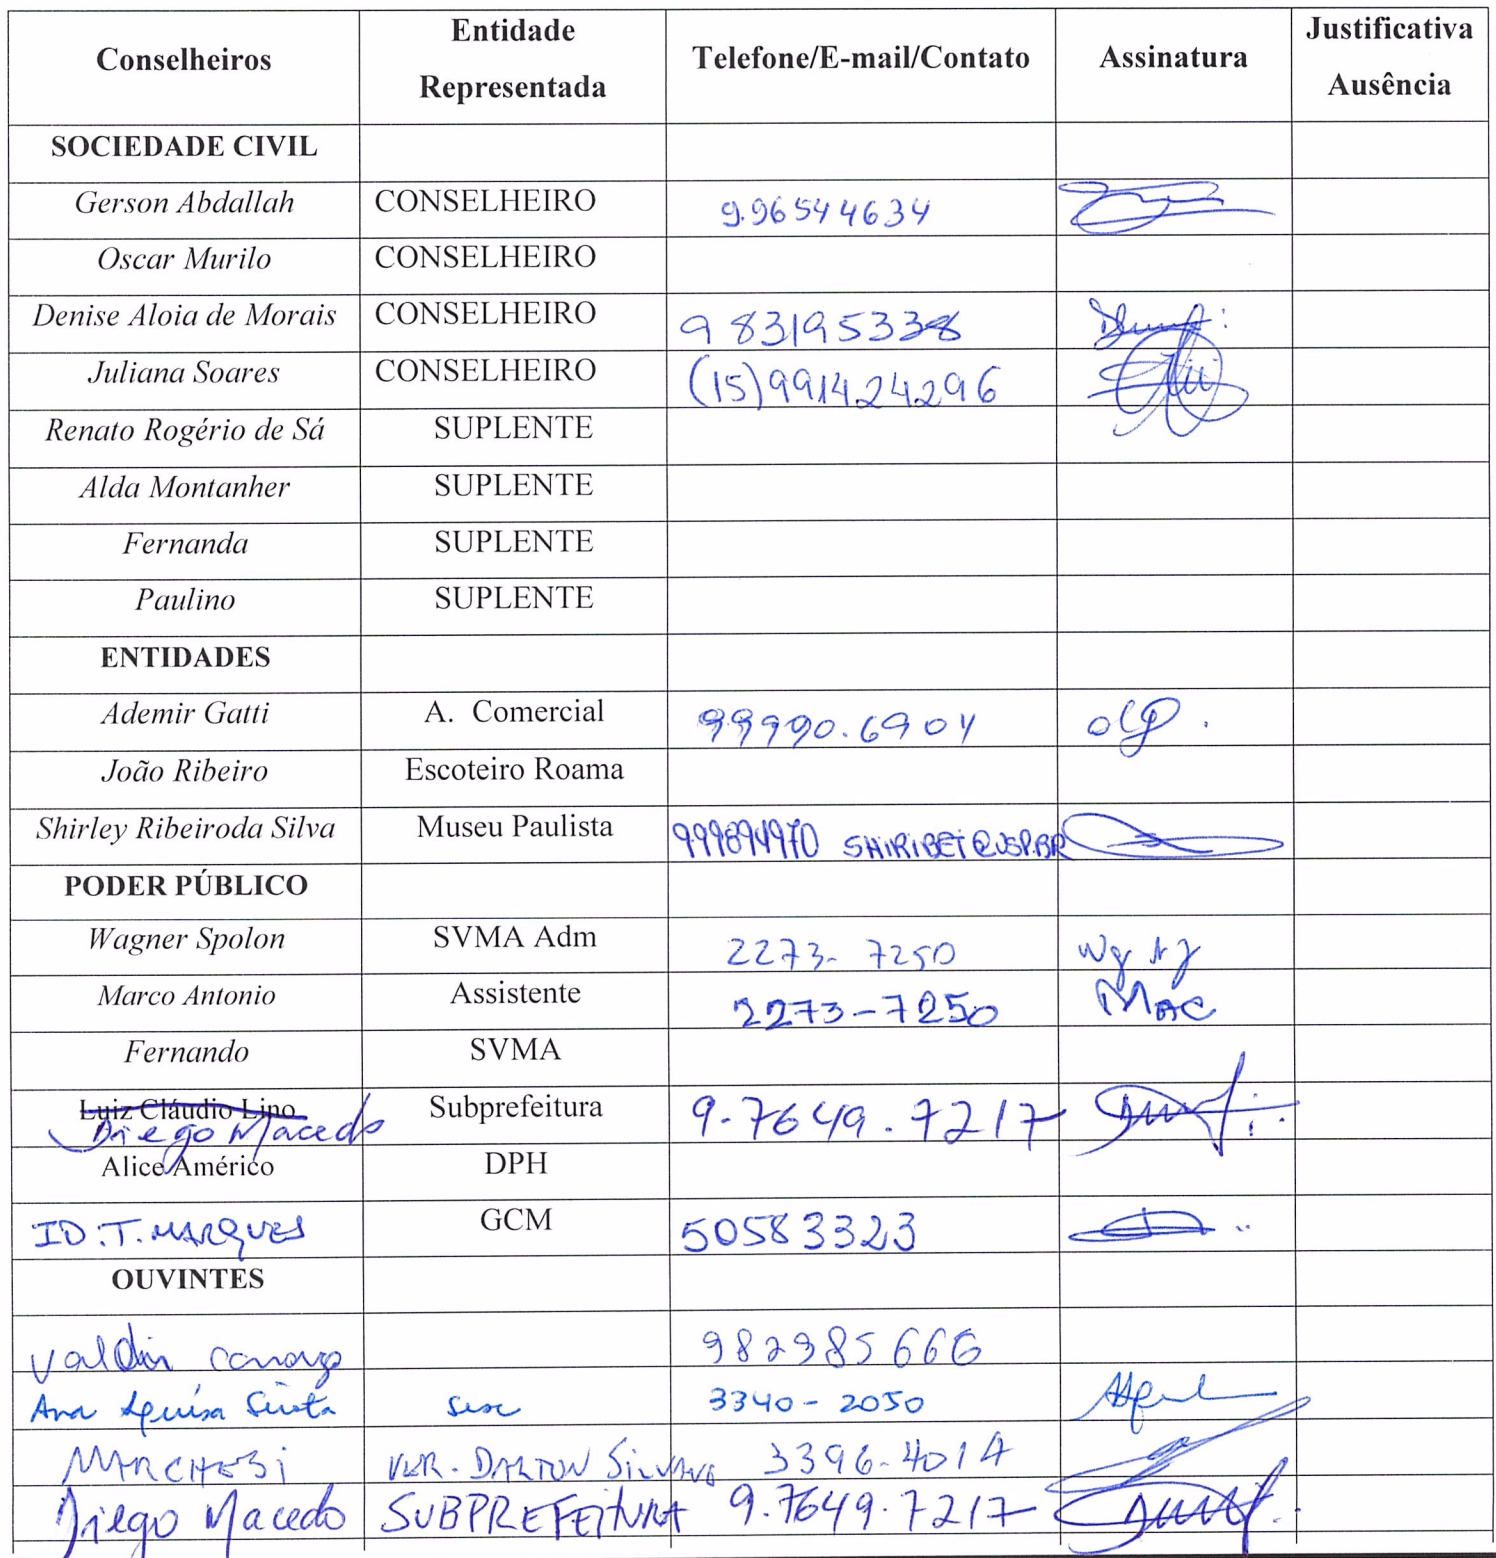 Conselheiros Entidade Representada Telefone/E-mail/Contato Assinatura Justificativa Ausência
SOCIEDADE CIVIL
Gerson Abdallah CONSELHEIRO 9.96544634
Oscar Murilo CONSELHEIRO
Denise Aloia de Morais CONSELHEIRO 983195338
Juliana Soares CONSELHEIRO (15)991424296
Renato Rogério de Sá SUPLENTE
Alda Montanher SUPLENTE
Fernanda SUPLENTE
Paulino SUPLENTE
ENTIDADES
Ademir Gatti A. Comercial 99990.6904
João Ribeiro Escoteiro Roama
Shirley Ribeiroda Silva Museu Paulista 999894970 SHIRIBEI@USP.BR
PODER PÚBLICO
Wagner Spolon SVMA Adm 2273-7250
Marco Antonio Assistente 2273-7250 MAC
Fernando SVMA
Luiz Cláudio Lino Subprefeitura 9.7649.7217
Diego Macedo
Alice Américo DPH
ID.T.MARQUES GCM 50583323
OUVINTES
Valdir 982985666
Ana sesc 3340-2050
MARCHESI VER. DALTON SILVANO 3396-4014
Diego Macedo SUBPREFEITURA 9.7649.7217